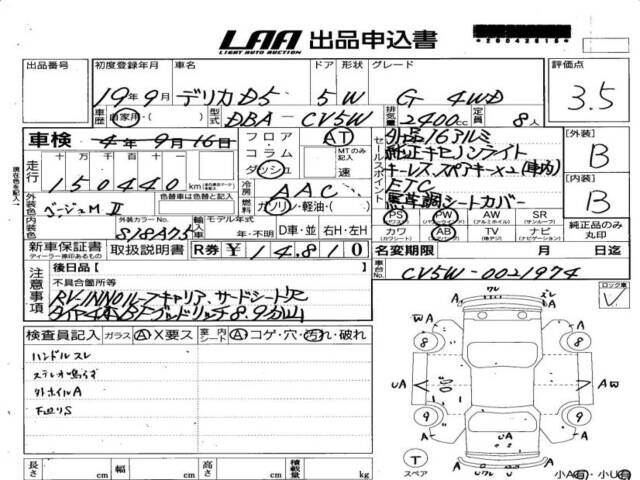 LAA 出品申込書
LIGHT AUTO AUCTION
出品番号 初度登録年月 車名 ドア 形状 グレード 評価点
19年9月 デリカD5 5 W G 4WD 3.5
車歴 自家用・( ) 型式 DBA-CV5W 排気量 2400cc 定員 8人
車検 4年9月16日 フロア・コラム・ダッシュ AT MTのみ記入 速
セールスポイント
外品16アルミ
純正キセノンライト
キーレス、スペアキー×2(車内)
ETC
馬革調シートカバー
【外装】 B
【内装】 B
走行 十万 万 千 百 十 一
150440 km
冷房 AAC
燃料 ガソリン・軽油・( )
外装色 ベージュMⅡ 色替車は色替と記入
外装カラーNo. S18A75 輸入車 モデル年式 年・不明 D車・並 右H・左H
内装色
PS (パワステ) PW (パワーウィンドウ) AW (アルミホイル) SR (サンルーフ)
カワ (カワシート) AB (エアバッグ) TV (地デジ) ナビ (ナビゲーション)
純正品のみ丸印
新車保証書 ディーラー捺印あるもの 取扱説明書 R券 ¥14,810
名変期限 月 日迄
車台No. CV5W-0021974
注意事項
後日品( )
不具合箇所等
RV-INNOルーフキャリア、サードシート尺
タイヤ4本BFグッドリッチ8.9分山
ロック車 レ
検査員記入 ガラス Ⓐ・X要ス 室内シート Ⓐ コゲ・穴・汚れ・破れ
ハンドルスレ
ステレオ鳴らず
外ホイルA
下回りS
ワレ
A A
W A A
8 8
UA A A W
9 9
A A
UA
T スペア
A ワレ UA
小A有・小U有
長さ cm 幅 cm 高さ cm 積載量 kg